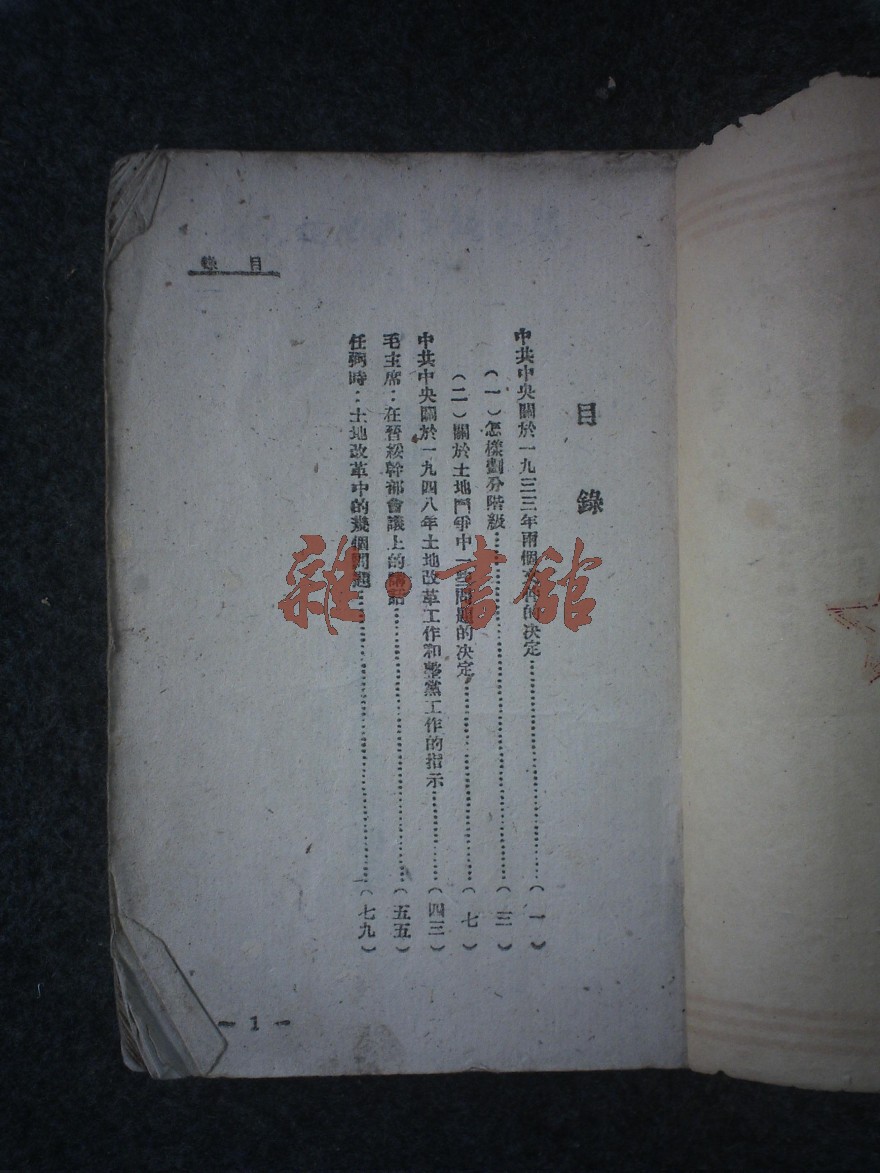 目錄
目錄
中共中央關於一九三三年兩個文件的決定……………………（一）
（一）怎樣劃分階級……………………（三）
（二）關於土地鬥爭中一些問題的決定……………………（七）
中共中央關於一九四八年土地改革工作和整黨工作的指示……………………（四三）
毛主席：在晉綏幹部會議上的講話……………………（五五）
任弼時：土地改革中的幾個問題……………………（七九）
— 1 —
雜·書館